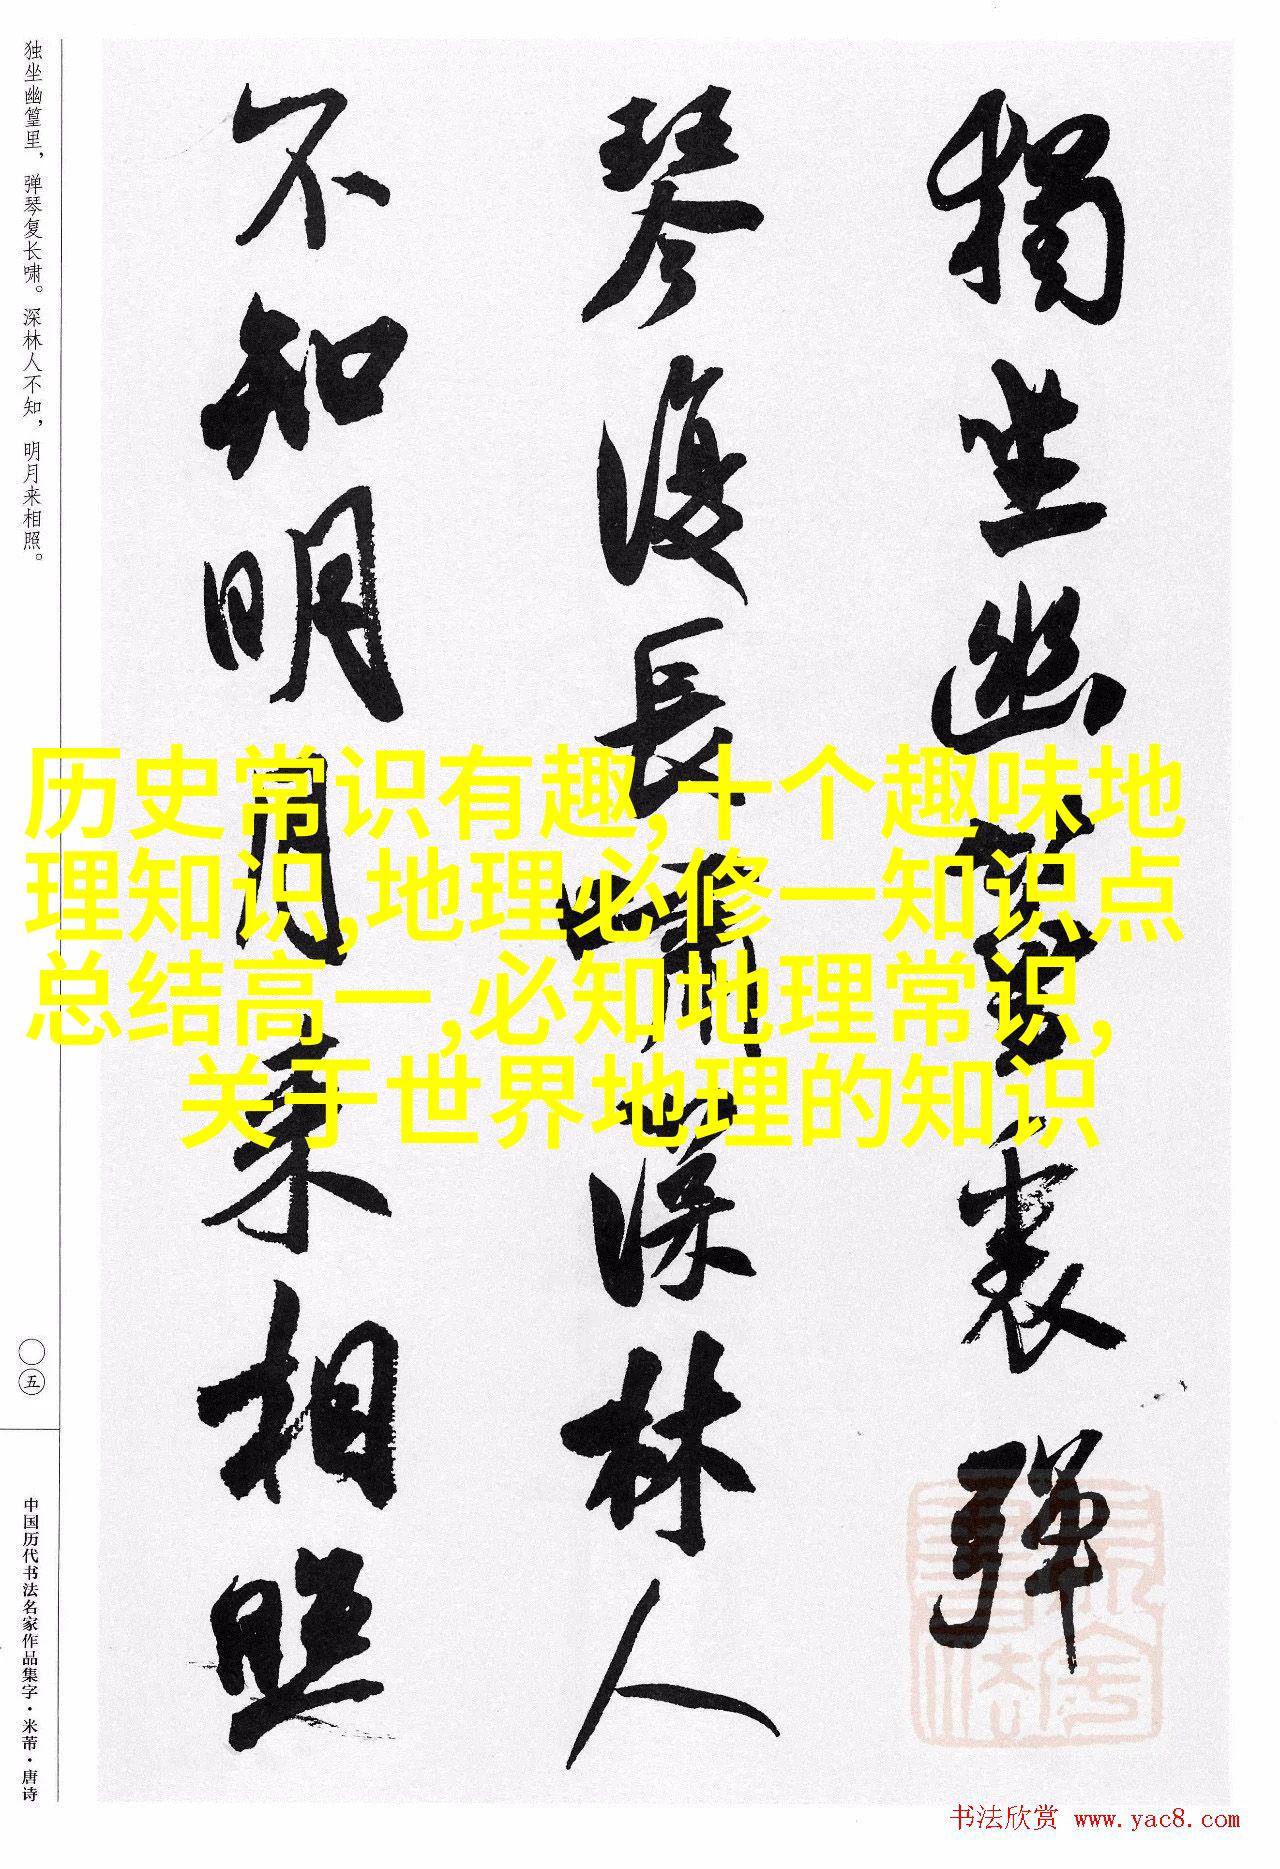 独坐幽篁里，弹琴复长啸。深林人不知，明月来相照。
獨坐幽篁裏彈
琴復長嘯深林人
不知明月來相照
历史常识有趣,十个趣味地
理知识,地理必修一知识点
总结高一,必知地理常识,
关于世界地理的知识
〇五
中国历代书法名家作品集字·米芾·唐诗
书法欣赏 www.yac8.com